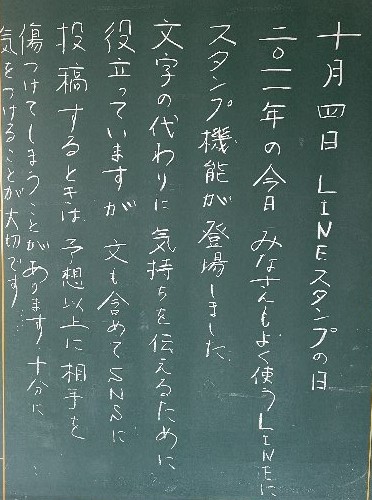 十月四日 LINEスタンプの日
二〇一一年の今日 みなさんもよく使うLINEに
スタンプ機能が登場しました
文字の代わりに 気持ちを伝えるために
役立っていますが 文も含めてSNSに
投稿するときは 予想以上に相手を
傷つけてしまうことがあります 十分に
気をつけることが大切です